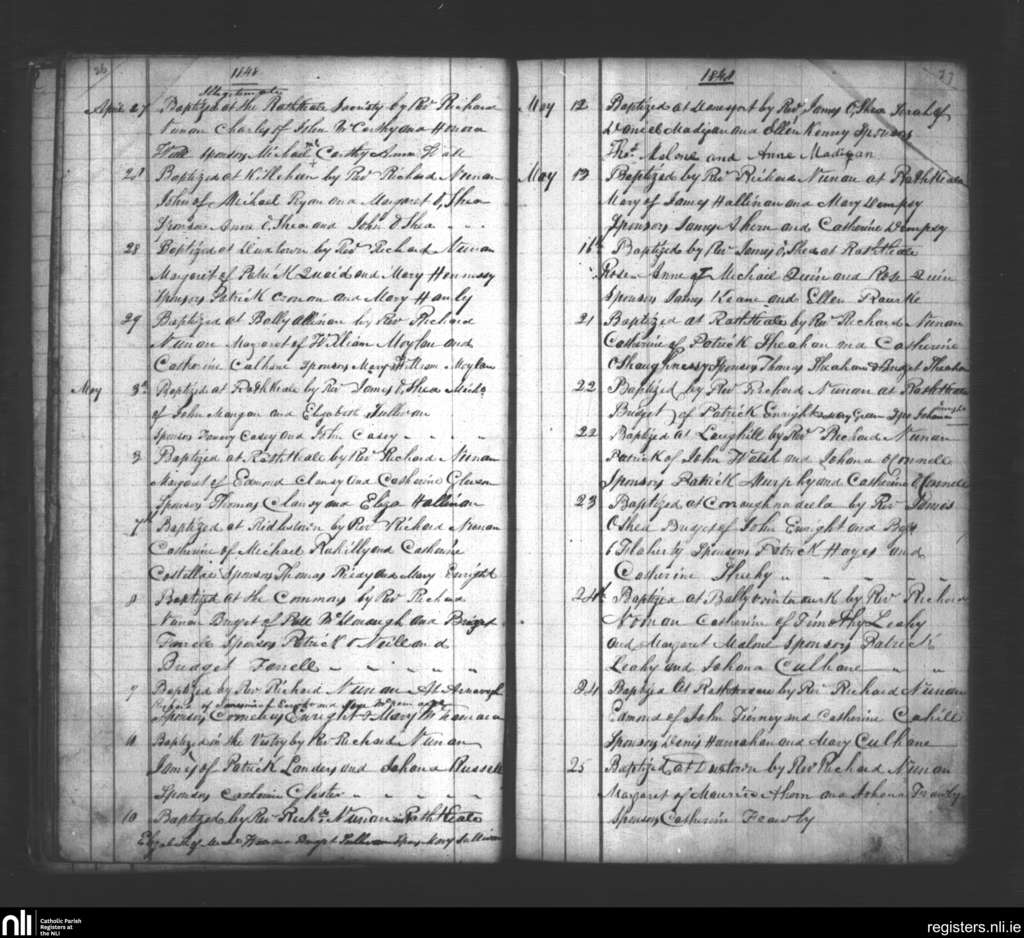 26
1848
Illegitimate
April 27 Baptized at the Rathkeale by Revd Richard
Nunan Charles of John McCarthy and Honora
Wall Sponsors Michael McCarthy & Anna Wall
28 Baptized at Kilkihan by Revd Richard Nunan
John of Michael Ryan and Margaret O,Shea
Sponsors Anne O Shea and John O Shea
28 Baptized at Duxtown by Revd Richard Nunan
Margaret of Patrick Quaid and Mary Hennessy
Sponsors Patrick Cronan and Mary Hanly
29 Baptized at Ballyallinan by Revd Richard
Nunan Margaret of William Moylan and
Catherine Culhane Sponsors Mary & William Moylan
May 3d Baptized at Rathkeale by Revd James O,Shea
of John Mangan and Elizabeth Sullivan
Sponsors Casey and John Casey
3 Baptized at Rathkeale by Revd Richard Nunan
Margaret of Edmond Clansy and Catherine Gleeson
Sponsors Thomas Clansy and Eliza Hallinan
7th Baptized at Riddlestown by Revd Richard Nunan
Catherine of Michael Rahilly and Catherine
Costelloe Sponsors Thomas Reidy and Mary Enright
8 Baptized at the Commons by Revd Richard
Nunan Bridget of McDonaugh and Bridget
Farrell Sponsors Patrick O Neill and
Bridget Farrell
9 Baptized by Revd Richard Nunan At
of Enright and
Sponsors Cornelius Enright & Mary McNamara
10 Baptized in the Vestry by Revd Richard Nunan
James of Patrick Landers and Johana Russell
Sponsors Catherine
10 Baptized by Revd Richd Nunan in Rathkeale
Elizabeth of and Bridget Sullivan Spons Mary Sullivan
27
1848
May 12 Baptized at by Revd James O,Shea Sarah of
Daniel Madigan and Ellen Kenny Sponsors
Thos Malone and Anne Madigan
May 13 Baptized by Revd Richard Nunan at Rathkeale
Mary of James Hallinan and Mary Dempsy
Sponsors James Ahern and Catherine Dempsy
16th Baptized by Revd James O,Shea at Rathkeale
Rosen Anne of Michael Quin and Rose Quin
Sponsors James Keane and Ellen Rourke
21 Baptized at Rathkeale by Revd Richard Nunan
Catherine of Patrick Sheahan and Catherine
O Shaughnessy Sponsors Thomas Sheahan & Bridget Sheahan
22 Baptized by Revd Richard Nunan at Rathkeale
Bridget of Patrick Enright & Mary Green Spo Johana Enright
22 Baptized at Loughill by Revd Richard Nunan
Patrick of John Walsh and Johana O Connell
Sponsors Patrick Murphy and Catherine O Connell
23 Baptized at by Revd James
O Shea Bridget of John Enright and
O Flaherty Sponsors Patrick Hayes and
Catherine Sheehy
24th Baptized at by Revd Richard
Nonan Catherine of Timothy Leahy
and Margaret Malone Sponsors Patrick
Leahy and Johana Culhane
24 Baptized At by Revd Richard Nunan
Edmond of John Tierney and Catherine Cahill
Sponsors Denis Hanrahan and Mary Culhane
25 Baptized at Duxtown by Revd Richard Nunan
Margaret of Maurice Ahern and Johana Frawly
Sponsors Catherine Frawly
nli
Catholic Parish
Registers at
the NLI
registers.nli.ie